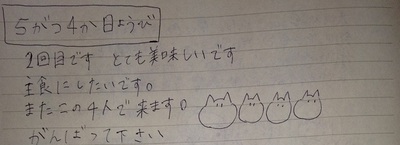 5がつ4か日ようび
2回目です とても美味しいです
主食にしたいです。
またこの4人で来ます。
がんばって下さい